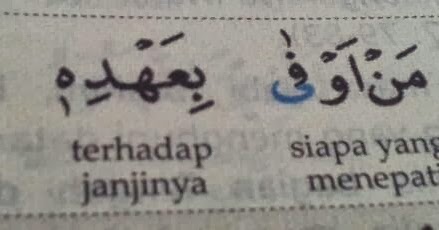 مَنْ اَوْفٰى بِعَهْدِهٖ
terhadap siapa yang
janjinya menepat